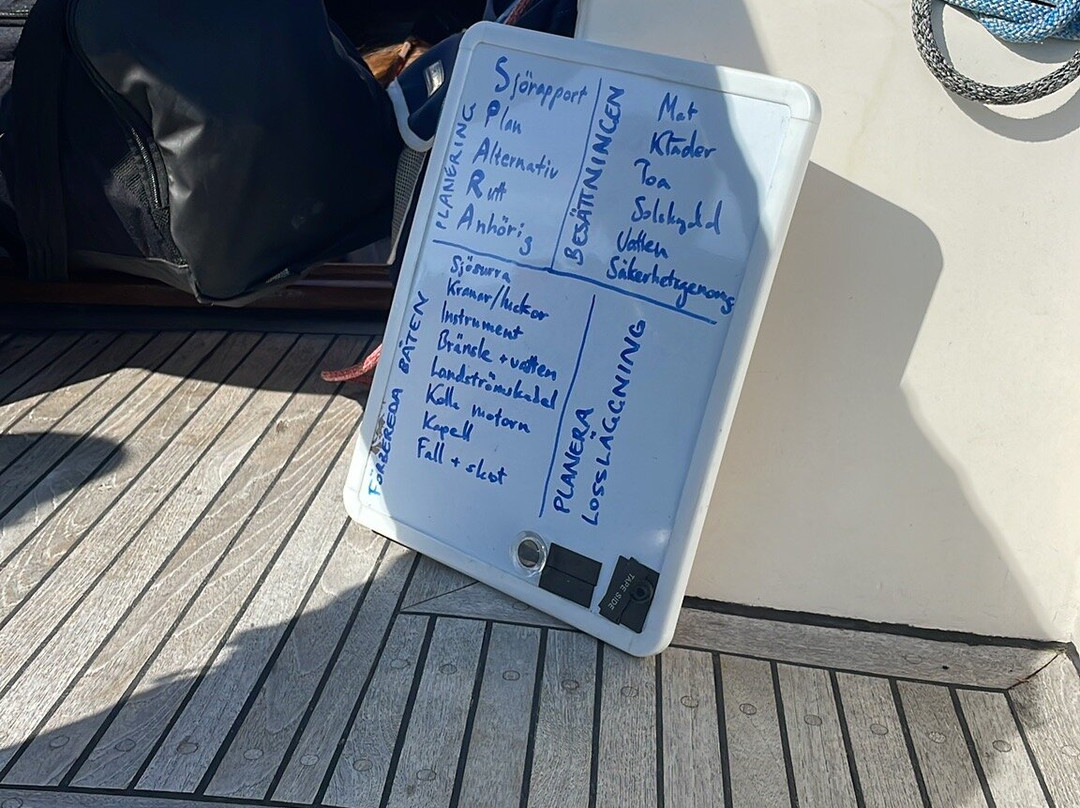 PLANERING
Sjörapport
Plan
Alternativ
Rutt
Anhörig
BESÄTTNINGEN
Mat
Kläder
Toa
Solskydd
Vatten
Säkerhetsgenomg
FÖRBEREDA BÅTEN
Sjösurra
Kranar/luckor
Instrument
Bränsle + vatten
Landströmskabel
Kolla motorn
Kapell
Fall + skot
PLANERA
LOSSLÄGGNING
TAPE SIDE